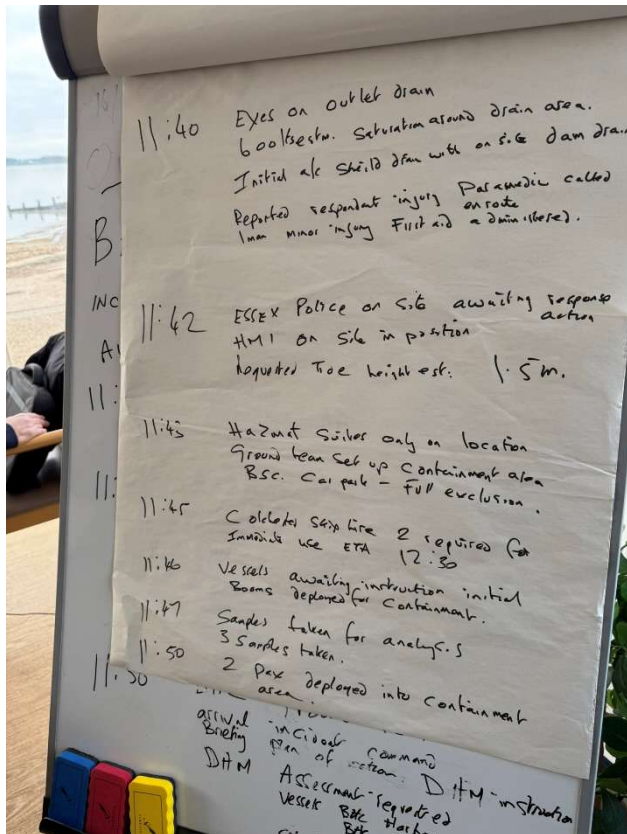 11:40 Eyes on outlet drain
600ltsestm. Saturation around drain area.
Initial a/c Sheild drain with on site dam drain
Reported respondent injury Paramedic called
enroute
1man minor injury First aid administered.
11:42 ESSEX Police on site awaiting response
action
HM1 on site in position
Requested Tide height est: 1.5m.
11:43 Hazmat Suites only on location
Ground team set up Containment area
BSC. Car park - Full exclusion.
11:45 Colchester Skip hire 2 required for
Immediate use ETA 12:30
11:46 Vessels awaiting instruction initial
Booms deployed for Containment.
11:47 Samples taken for analysis
3 Samples taken.
11:50 2 Pax deployed into Containment
area.
B
INC
A
11:
11:
11:50
arrival incident command
Briefing Plan of action. DHM instruction
DHM Assessment requested
Vessels